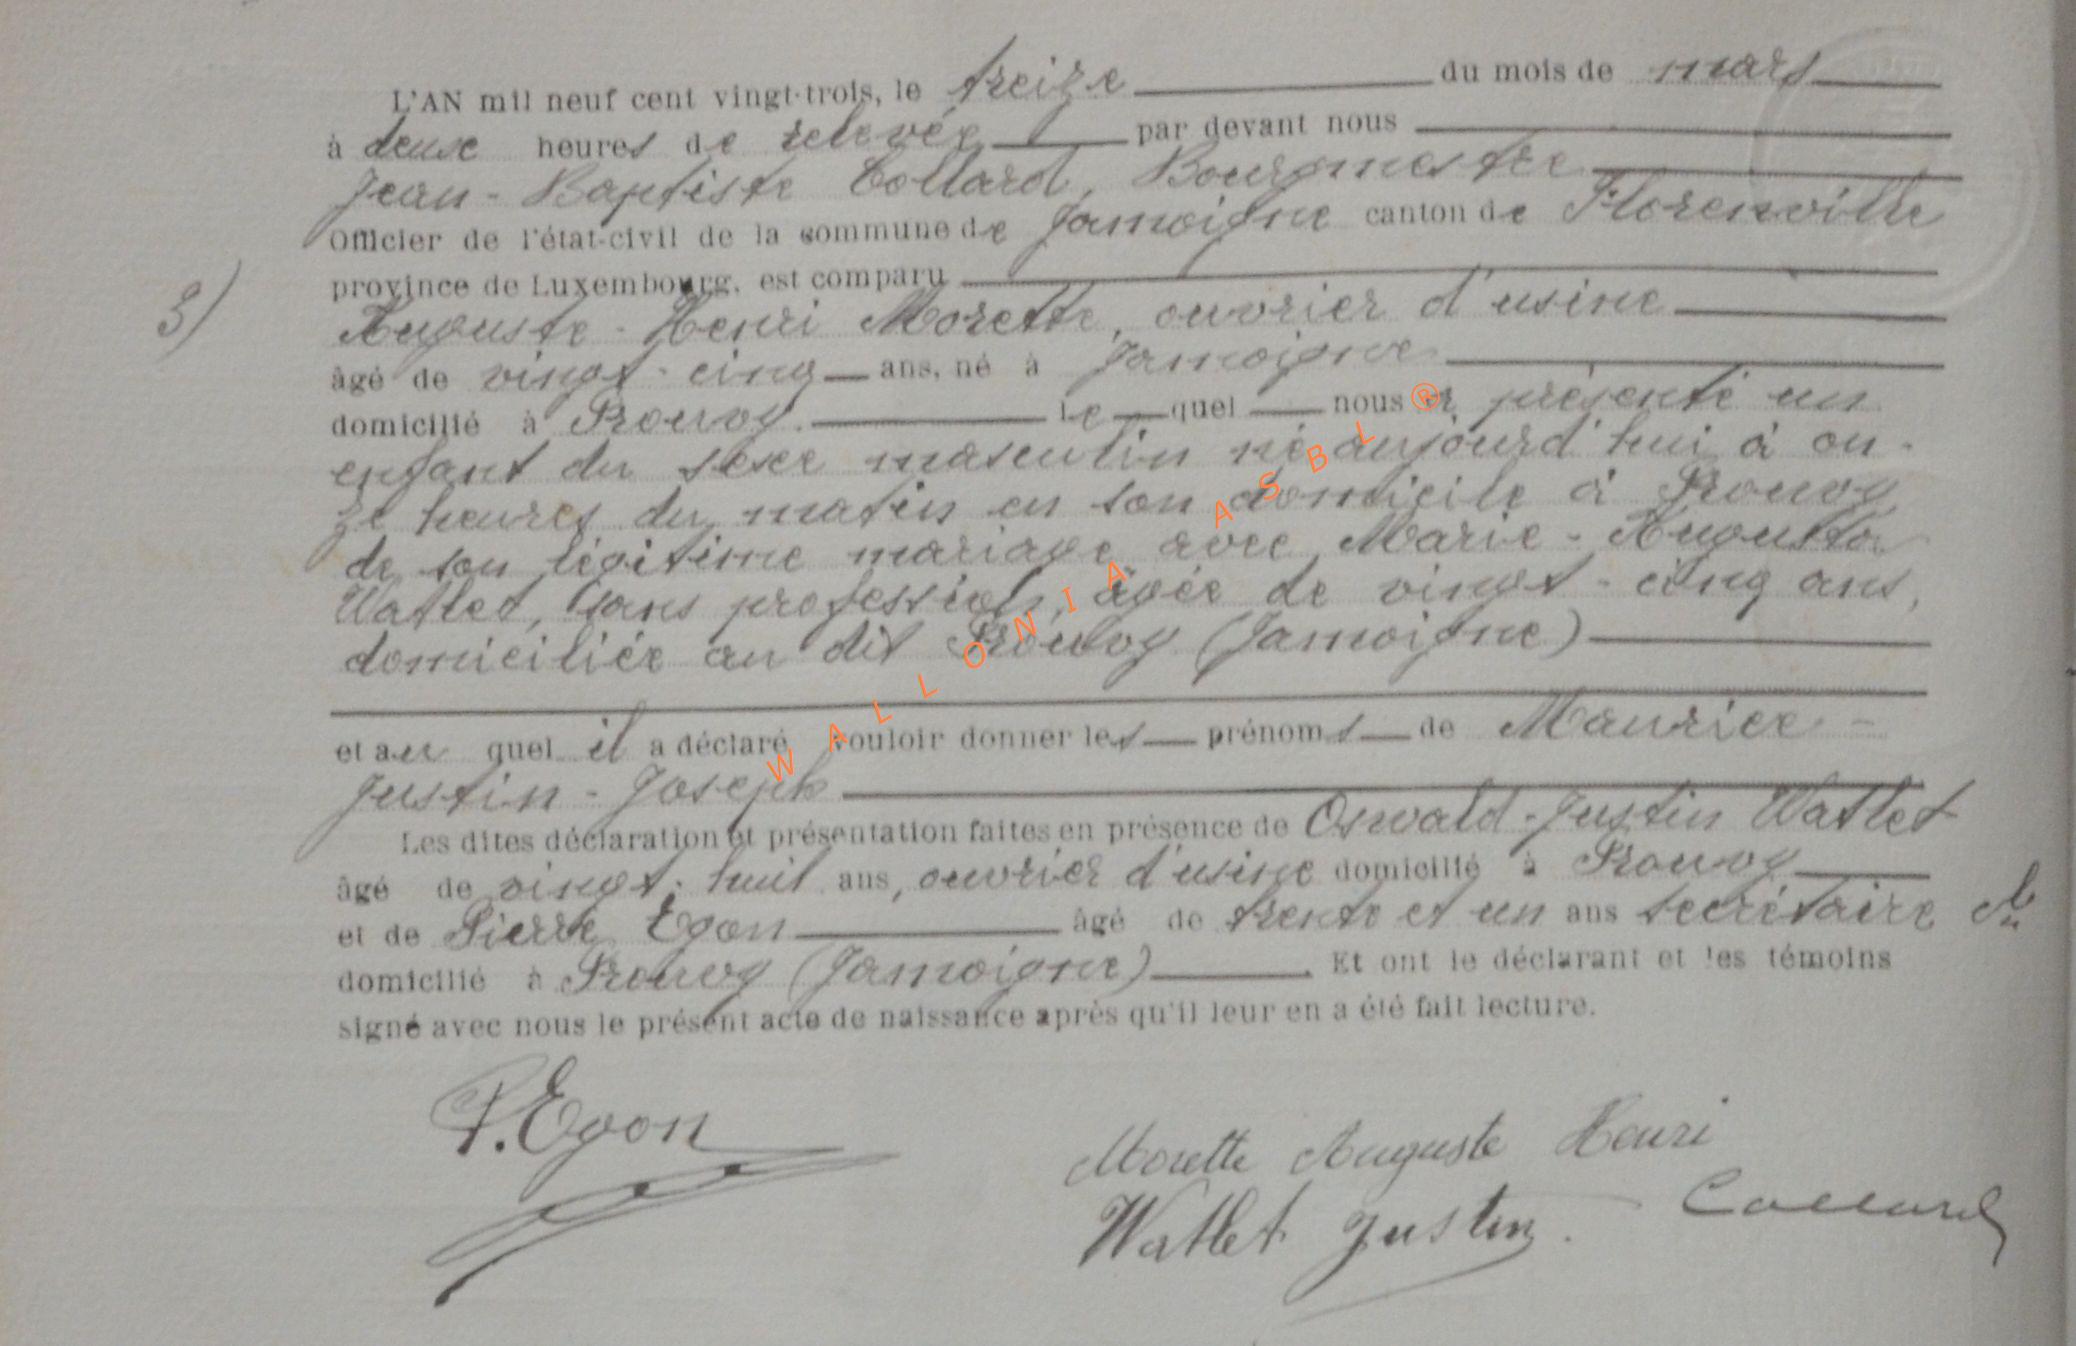 L'AN mil neuf cent vingt-trois, le treize du mois de mars
à deux heures de relevée par devant nous
Jean-Baptiste Collard, Bourgmestre
Officier de l'état-civil de la commune de Jamoigne canton de Florenville
province de Luxembourg, est comparu
3)
Auguste-Henri Morette, ouvrier d'usine
âgé de vingt-cinq ans, né à Jamoigne
domicilié à Prouvy. lequel nous a présenté un
enfant du sexe masculin né aujourd'hui à on-
ze heures du matin en son domicile à Prouvy
de son légitime mariage avec Marie-Augusta
Watlet, sans profession, âgée de vingt-cinq ans,
domiciliée au dit Prouvy (Jamoigne)
et auquel il a déclaré vouloir donner les prénoms de Maurice-
Justin-Joseph
Les dites déclaration et présentation faites en présence de Oswald-Justin Watlet
âgé de vingt-huit ans, ouvrier d'usine domicilié à Prouvy
et de Pierre Egon âgé de trente et un ans secrétaire
domicilié à Prouvy (Jamoigne). Et ont le déclarant et les témoins
signé avec nous le présent acte de naissance après qu'il leur en a été fait lecture.
P. Egon
Morette Auguste Henri
Watlet Justin.
Collard
WALLONIA ASBL ®